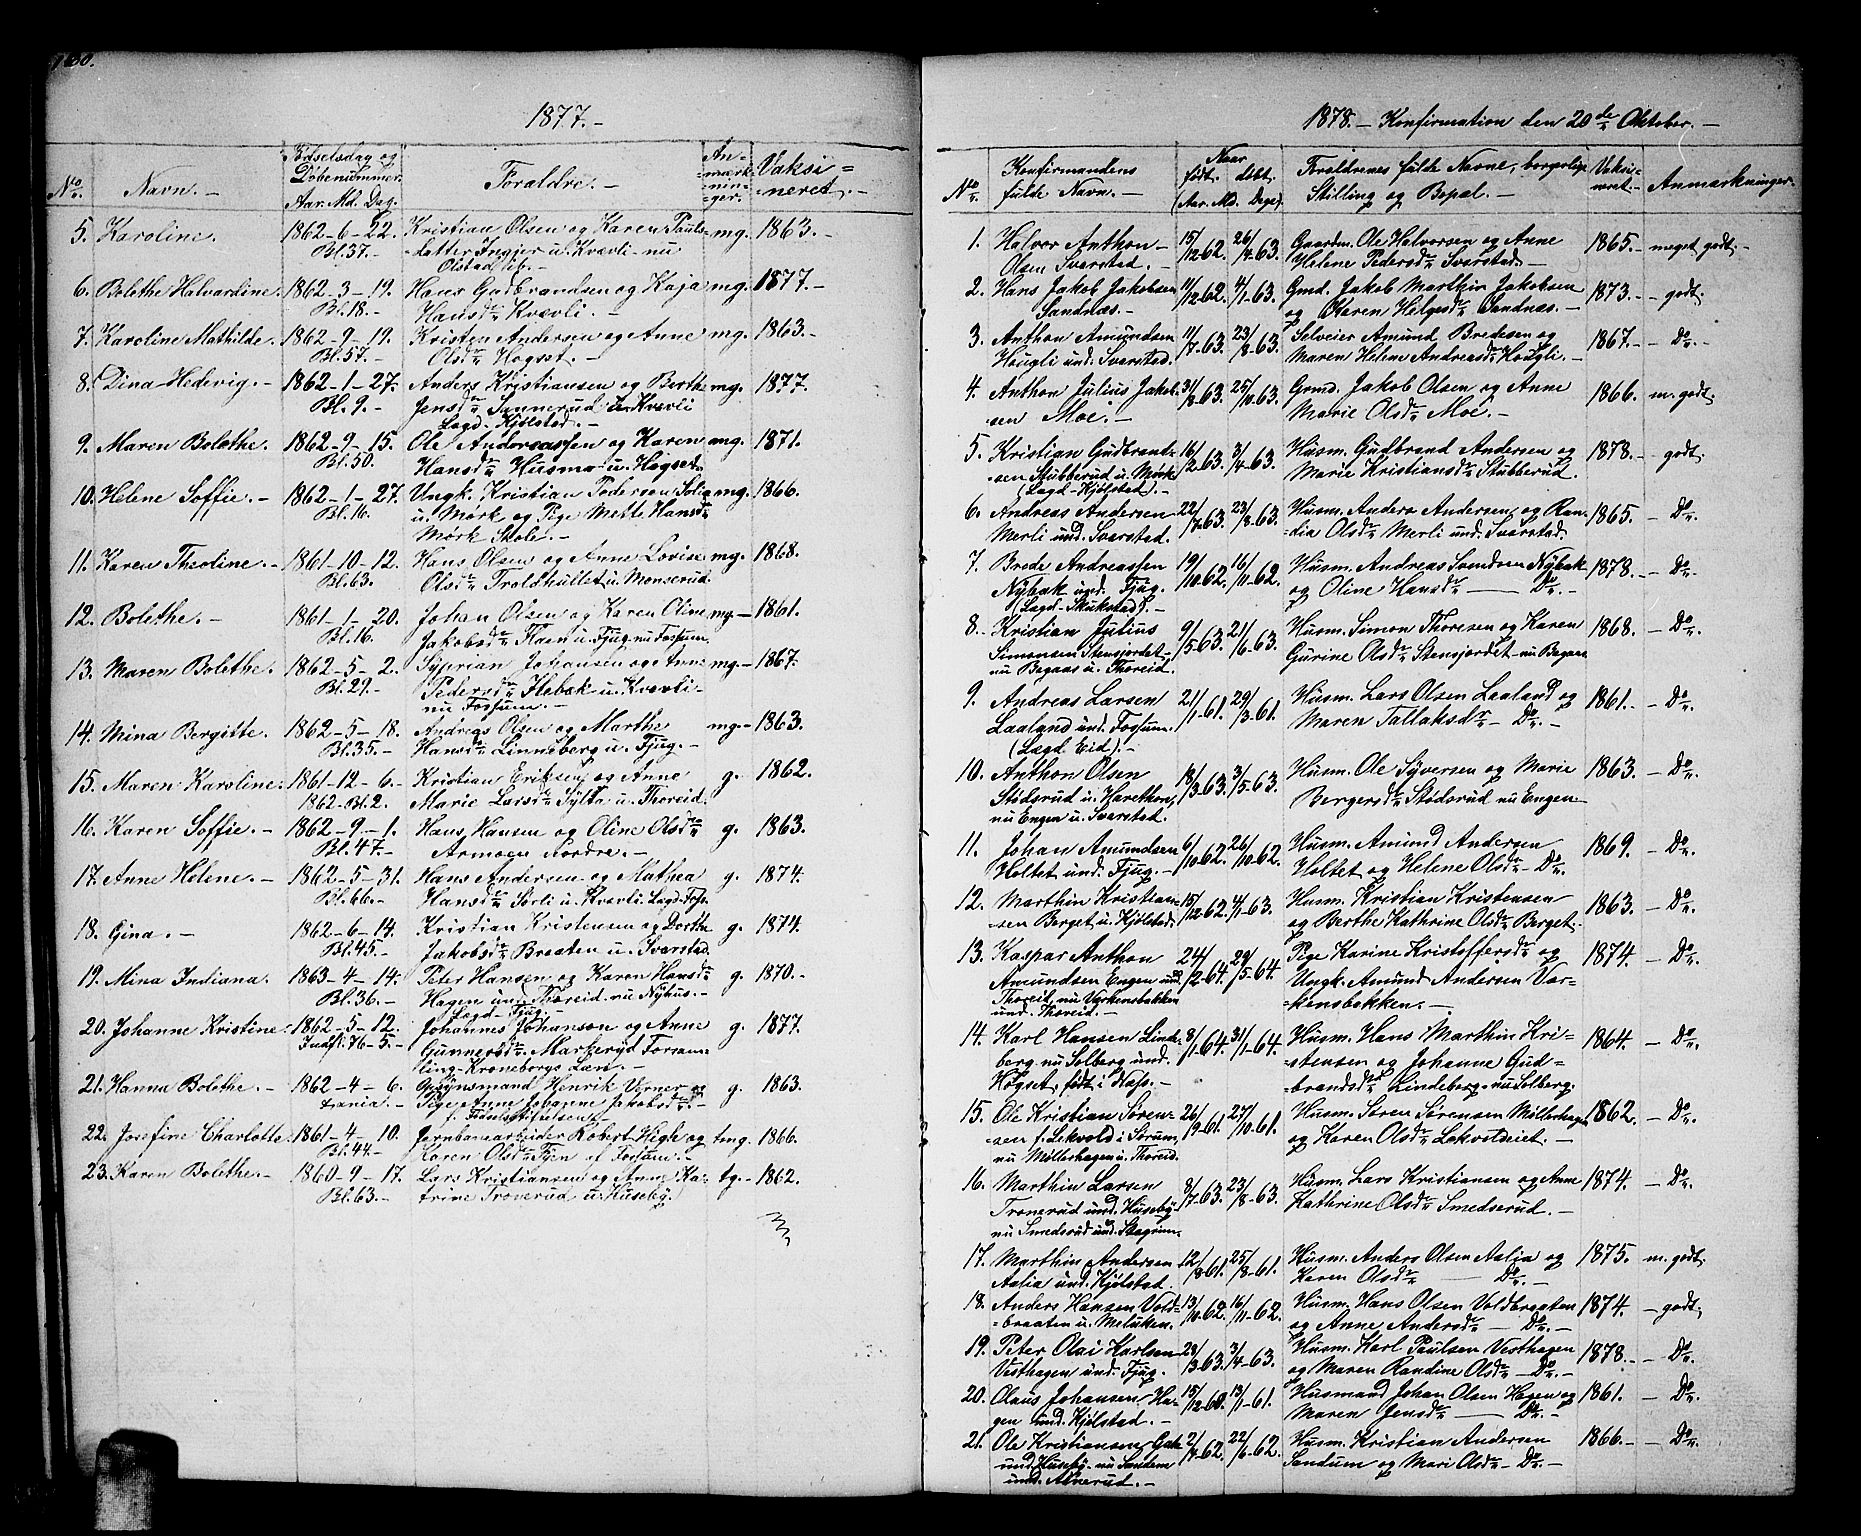 1877.-
No. Navn.- Fødselsdag og Døbenummer. Aar. Md. Dag. Forældre.- An-mærk-nin-ger. Vaksi-neret.-
5. Karoline. 1862-6-22. Kristian Olsen og Karen Pauls- mg. 1863.-
Bl. 37.- datter u. Kvævli nu
Olstad eie.-
6. Bolethe Halvardine. 1862-3-19. Hans Gudbrandsen og Kaja mg. 1877.-
Bl. 18.- Hansdr Kvævli.-
7. Karoline Mathilde. 1862-9-19. Kristen Andersen og Anne mg. 1863.-
Bl. 57.- Olsdr Hogset.-
8. Dina Hedevig.- 1862-1-27. Anders Kristiansen og Berthe mg. 1877.
Bl. 9.- Jensdr Sunnerud u. Kvævli
Lagd. Kjølstad.-
9. Maren Bolethe. 1862-9-15. Ole Andreassen og Karen mg. 1871.
Bl. 50. Hansdr Husmo u. Hogset.
10. Helene Soffie.- 1862-1-27. Ungk. Kristian Pedersen Solia mg. 1866.
Bl. 16. u. Mørk og Pige Mette Hansdr
Mørk Skole.-
11. Karen Theoline.- 1861-10-12. Hans Olsen og Anne Lovise mg. 1868.
Bl. 63. Olsdr Troldhullet u. Monserud
12. Bolethe.- 1861-1-20. Johan Olsen og Karen Oline mg.- 1861.
Bl. 16. Jakobsdr Haen u. Fjug nu Fossum.
13. Maren Bolethe. 1862-5-2. Syprian Johansen og Anne mg.- 1867.
Bl. 29.- Pedersdr Holbak u. Kvævli-
nu Fossum.-
14. Mina Bergitte. 1862-5-18. Andreas Olsen og Marthe mg.- 1863.
Bl. 35.- Hansdr Linneberg u. Fjug.-
15. Maren Karoline. 1861-12-6. Kristian Eriksen og Anne g. 1862.
1862-Bl. 2. Marie Larsdr Sylta u. Thoreid.
16. Karen Soffie.- 1862-9-1. Hans Hansen og Oline Olsdr g. 1863.
Bl. 47.- Asmoen nordre.-
17. Anne Helene.- 1862-5-31. Hans Andersen og Mathea g. 1874.
Bl. 66.- Hansdr Sørli u. Kvævli Lagd. Foss.
18. Gina.- 1862-6-14. Kristian Kristensen og Dorthe g. 1874.
Bl. 45.- Jakobsdr Braaten u. Sværstad.
19. Mina Indiana. 1863-4-14. Peter Hansen og Karen Hansdr g. 1870.-
Bl. 36.- Hagen und. Thoreid, nu Nyhus.-
Lagd. Fjug.-
20. Johanne Kristine. 1862-5-12. Johannes Johanson og Anne g. 1877.
Indfl. 76-5.- Gunnersdr Markeryd Forsam-
ling-Kroneborgs Län.-
21. Hanna Bolethe.- 1862-4-6. Opsynsmand Henrik Verner og g. 1863.
Pige Anne Johanne Jakobsdr.-
f. Fødselsstiftelsen
22. Josefine Charlotte 1861-4-10. Jernbanearbeider Robert High og tmg. 1866.
Bl. 44.- Karen Olsdr Fjen af Fossum.-
23. Karen Bolethe.- 1860-9-17. Lars Kristiansen og Anne Ka- tg.- 1862.
Bl. 63.- trine Tronerud u. Huseby.
1878.- Konfirmation den 20de Oktober.-
No. Konfirmandens fulde Navn.- Naar født. døbt. (Aar. Md. Dage). Forældrenes fulde Navne, borgerlige Stilling og Bopæl.- Vaksi-neret.- Anmærkninger.
1. Halvor Anthon- 15/12-62. 26/4-63. Gaardm. Ole Halvorsen og Anne 1865.- meget godt.-
Olsen Sværstad.- Helene Pedersdr Sværstad.-
2. Hans Jakob Jakobsen 11/12-62. 4/1-63. Gmd. Jakob Marthin Jakobsen 1873.- godt.
Sandnæs.- og Karen Helgesdr Sandnæs.-
3. Anthon Amundsen 11/7-63. 23/8-63. Selveier Amund Bredesen og 1867.- Do.
Hougli und. Sværstad. Maren Helene Andreasdr Hougli.-
4. Anthon Julius Jakob- 31/8-63. 25/10-63. Grmd. Jakob Olsen og Anne 1866. m. godt.
sen Moe.- Marie Olsdr Moe.-
5. Kristian Gudbrand- 16/2-63. 3/4-63. Husm. Gudbrand Andersen og 1878.- godt.
sen Stubberud u. Mørk Marie Kristiansdr Stubberud.
(Lagd-Kjølstad).-
6. Andreas Andersen 22/7-63. 23/8-63. Husm. Anders Andersen og Ran- 1865.- Do.
Merli und. Sværstad. dia Olsdr Merli und. Sværstad.
7. Brede Andreassen 19/10-62. 16/11-62. Husm. Andreas Nybak 1878.- Do.
Nybak und. Fjug. og Oline Hansdr - Do.-
(Lagd-Skukstad).-
8. Kristian Julius 9/5-63. 21/6-63. Husm. Simon Thoresen og Karen 1868.- Do.
Simonsen Stensjordet- Gurine Olsdr Stensjordet nu Begaas
nu Begaas u. Thoreid.
9. Andreas Larsen 21/1-61. 29/3-61. Husm. Lars Olsen Laaland og 1861.- Do.
Laaland und. Fossum. Maren Tallaksdr - Do.-
(Lægd. Eid).-
10. Anthon Olsen 18/3-63. 3/5-63. Husm. Ole Syversen og Marie 1863.- Do.
Stødsrud u. Harethon, Bergersdr Stødsrud nu Engen-
nu Engen u. Sværstad.
11. Johan Amundsen 6/10-62. 26/10-62. Husm. Amund Andersen 1869.- Do.
Holtet und. Fjug.- Holtet og Helene Olsdr - Do.
12. Marthin Kristian- 15/12-62. 4/1-63. Husm. Kristian Kristensen 1863.- Do.
sen Berget u. Kjølstad. og Berthe Kathrine Olsdr Berget.-
13. Kaspar Anthon 24/2-64. 29/5-64. Pige Karine Kristoffersdr og 1874.- Do.
Amundsen Engen und Ungk. Amund Andersen Vær-
Thoreid, nu Værkensbakken kensbakken.-
und. Thoreid.-
14. Karl Hansen Linde- 8/1-64. 31/1-64. Husm. Hans Marthin Kri- 1864.- Do.
berg nu Solberg und. stensen og Johanne Gud-
Hogset, født i Næs.- brandsdr Lindeberg nu Solberg.
15. Ole Kristian Søren- 26/9-61. 27/10-61. Husm. Søren Sørensen Møllerhagen 1862.- Do.
sen f. Lekvold i Sørum, og Karen Olsdr Lekvoldeiet.-
nu Møllerhagen u. Thoreid.
16. Marthin Larsen 8/7-63. 23/8-63. Husm. Lars Kristiansen og Anne 1874.- Do.
Tronerud und. Huseby Kathrine Olsdr Smedserud.-
nu Smedsrud und.
17. Marthin Andersen 12/8-61. 25/8-61. Husm. Anders Olsen Aalia og 1875.- m. godt.
Aalia und. Kjølstad. Karen Olsdr - Do.-
18. Anders Hansen Vold- 13/10-62. 16/11-62. Husm. Hans Olsen Voldbraaten 1874.- godt.
braaten u. Melnken. og Anne Andersdr - Do.-
19. Peter Olai Karlsen 29/3-63. 3/4-63. Husm. Karl Paulsen Vesthagen 1878.- Do.
Vesthagen und. Fjug. og Maren Randine Olsdr - Do.-
20. Olaus Johansen Ha- 15/12-60. 13/1-61. Husmand Johan Olsen Hagen og 1861.- Do.
gen und. Kjølstad.- Maren Jensdr - Do.-
21. Ole Kristiansen 2/4-62. 22/6-62. Husm. Kristian Andersen 1866.- Do.
und. Huseby nu Sandum Sandum og Mari Olsdr - Do.-
und. Asnerud.-